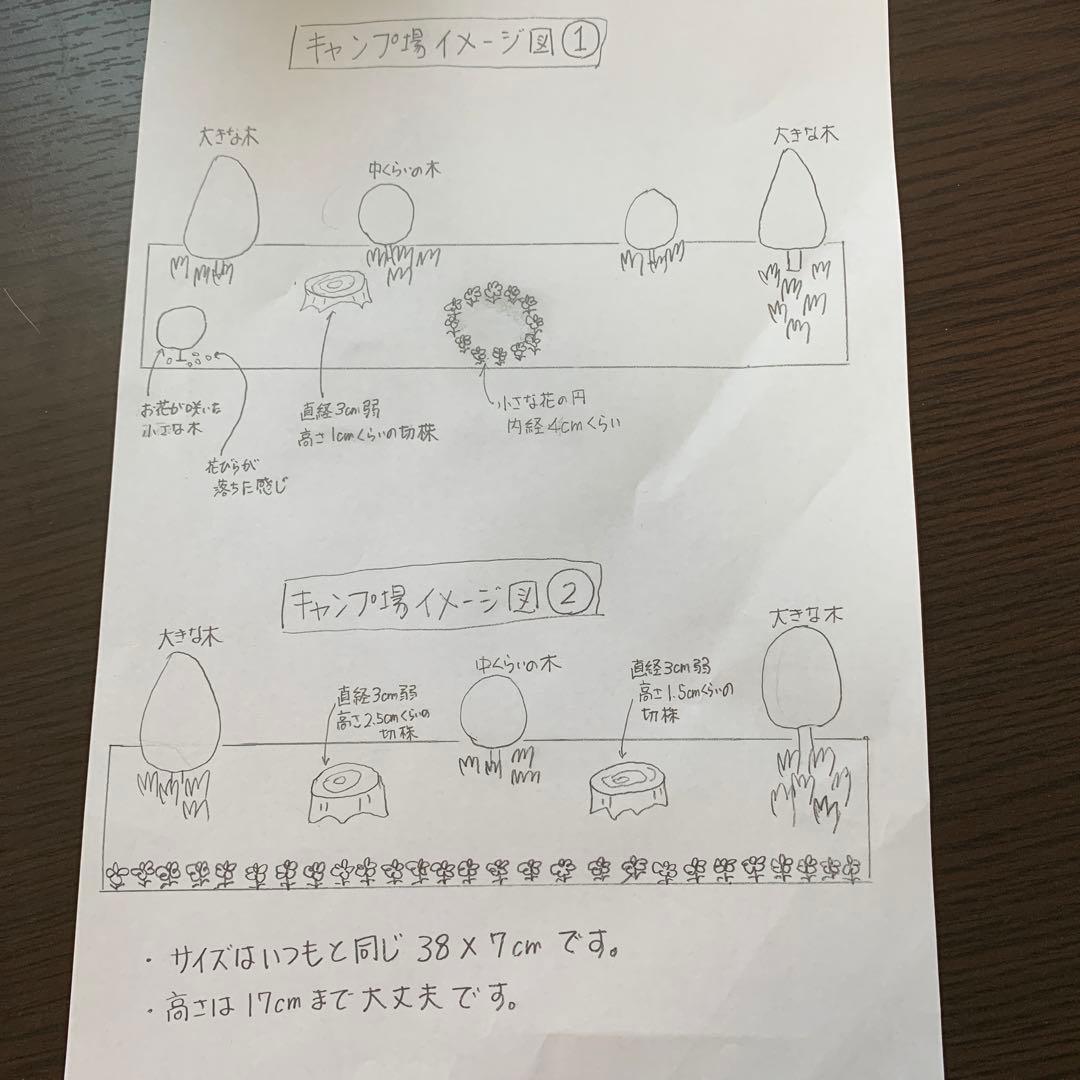 キャンプ場イメージ図①
大きな木
中くらいの木
大きな木
お花が咲いた
小さな木
花びらが
落ちた感じ
直経3cm弱
高さ1cmくらいの切株
小さな花の円
内経4cmくらい
キャンプ場イメージ図②
大きな木
直経3cm弱
高さ2.5cmくらいの
切株
中くらいの木
直経3cm弱
高さ1.5cmくらいの
切株
大きな木
・サイズはいつもと同じ 38×7cmです。
・高さは17cmまで大丈夫です。